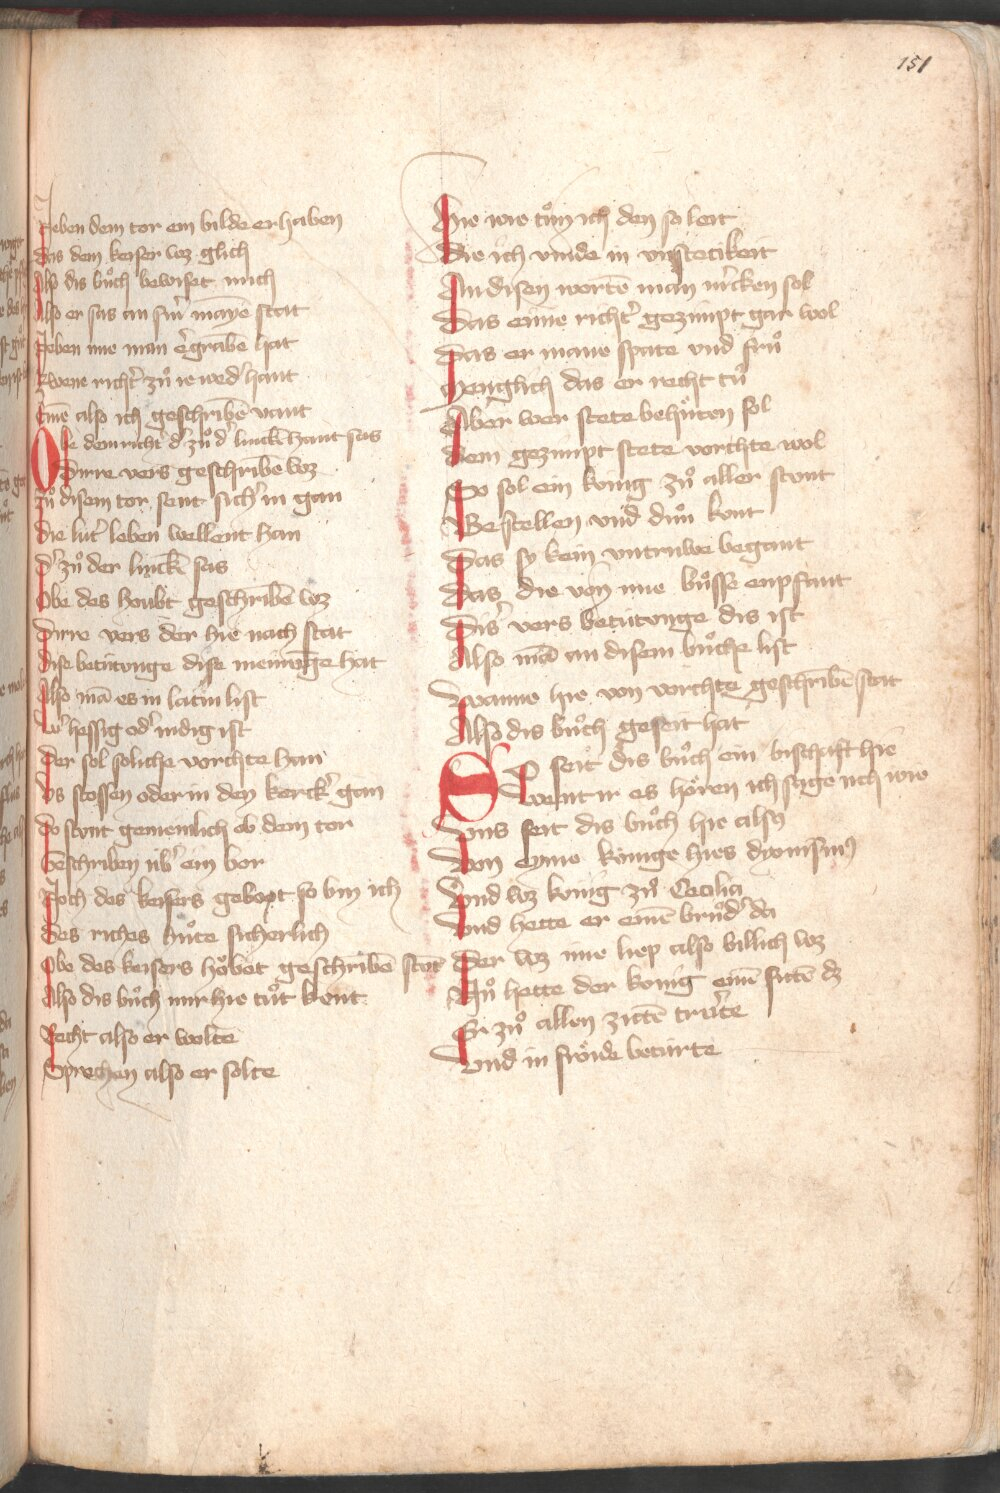 151
Neben dem tor ein bilde erhaben
das dem keiser wz glich
Also dis bůch bewiset mich
Also er sas an sinr̕ mayē stat
Neben ime man e̕grabē hat
Zwene richt̕ zů iewed̕ hant
Eine also ich geschribē vant
Obe dem richt̕ d̕ zů d̕ linckē hant sas
dirre vers geschribē wz
zů disem tor sent sich̕ in gan
Die lut̕ leben wellent han
D̕ zů der linckē sas
Obe des houbt geschribē wz
Dirre vers der hie nach stat
Dise betütunge dise meinunge hat
Also mā es in latin list
W̕ hessig od̕ nidig ist
Der sol soliche vorchte han
Vs stossen oder in den kerck̕ gan
Do stont gemeinlich ob dem tor
Beschriben üb̕ ein bor
Noch des keisers gebopt so bin ich
Des riches hůte sicherlich
Obe des keisers hőbet geschribē stot
Also dis bůch mir hie tůt kent
Recht also er wolte
Sprechen also er solte
Hie wie tůn ich den so leit
Die ich vinde in vnstetikeit
An disen wortē man m̕cken sol
Das eime richt̕ gezimpt gar wol
Das er mane spate vnd frů
Menglich das er recht tů
Aber wer stete behůten sol
Dem gezimpt stete vorchte wol
So sol ein kőnig zů aller stont
Bestellen vnd důn kont
Das sy kein vntruwe begant
Das die von ime bůsse enpfant
Dis̕ vers betütunge dis ist
Also mā an disem bůche list
Wanne hie von vorchte geschribē stat
Also dis bůch geseit hat
So seit dis bůch ein bischaft hie
Went ir es hőren ich sage uch wie
Vns seit dis bůch hie also
Von eyme kőnige hies dyonisius
Vnd wz kőnig zů Cecilia
Vnd hette er einē brůd̕ da
Der wz ime liep also billich wz
Nů hette der kőnig einē sittē dz
Er zů allen zittē trurte
Vnd in frőide beturte